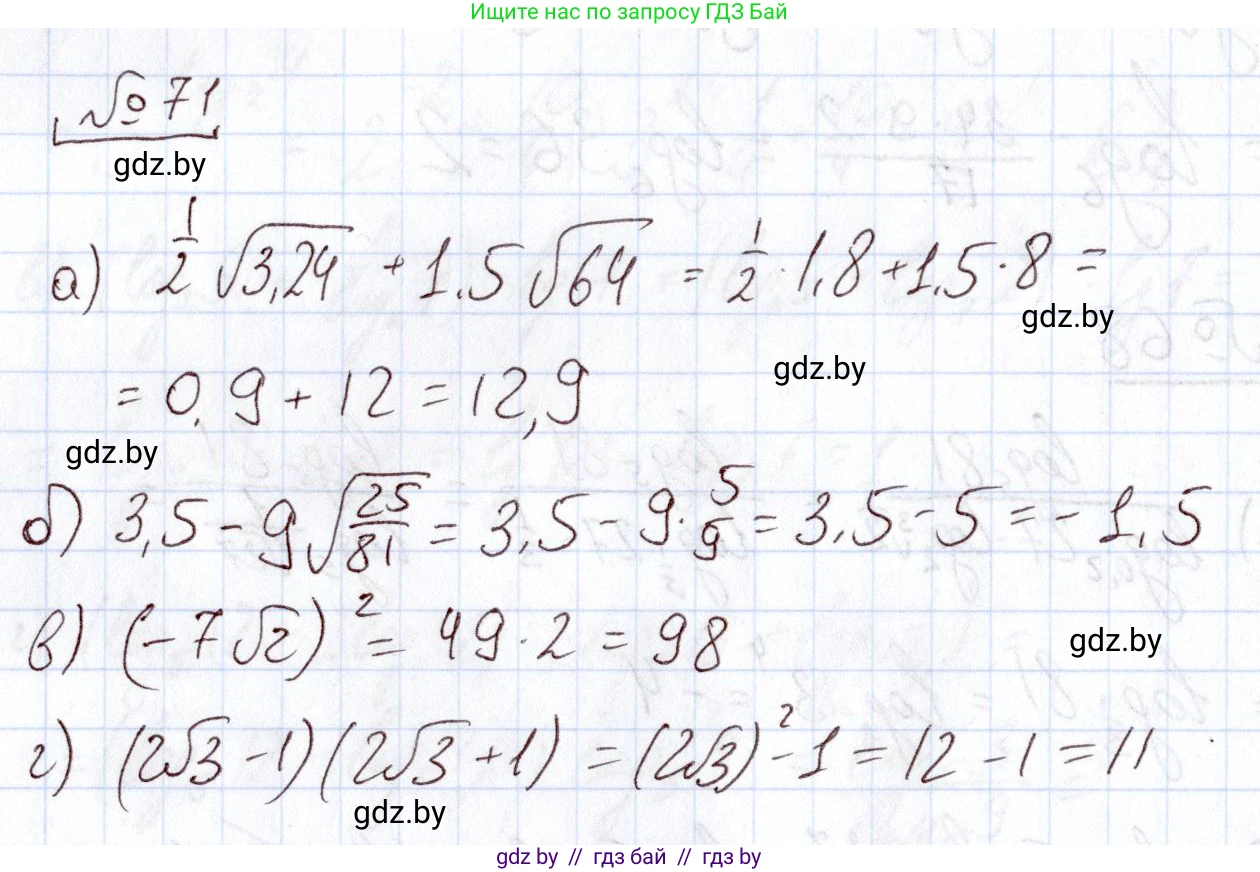 Ищите нас по запросу ГДЗ Бай
№ 71
gdz.by
а) 1/2 √3,24 + 1.5 √64 = 1/2 · 1,8 + 1,5 · 8 =
gdz.by
= 0,9 + 12 = 12,9
gdz.by
gdz.by
б) 3,5 - 9 √25/81 = 3,5 - 9 · 5/9 = 3,5 - 5 = - 1,5
в) (-7√2)² = 49 · 2 = 98
gdz.by
г) (2√3 - 1)(2√3 + 1) = (2√3)² - 1 = 12 - 1 = 11
gdz.by
gdz by // гдз бай // гдз by